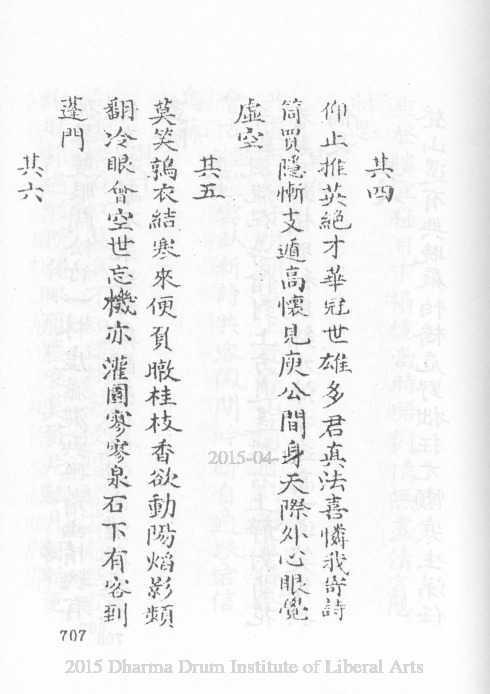 其四
仰止推英絕才華冠世雄多君真法喜憐我寄詩
筒買隱慚支遁高懷見庾公間身天際外心眼覺
虛空
其五
莫笑鶉衣結寒來便負暾桂枝香欲動陽焰影頻
翻冷眼曾空世忘機亦灌園寥寥泉石下有客到
蓬門
其六
707
2015-04-
2015 Dharma Drum Institute of Liberal Arts